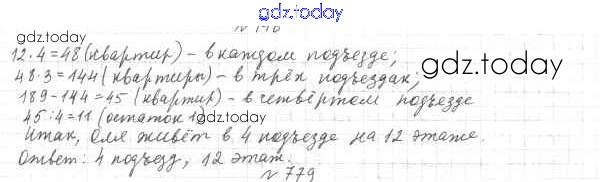 gdz.today
12·4=48 (квартир) - в каждом подъезде;
48·3=144 (квартиры) - в трёх подъездах;
gdz.today
189-144=45 (квартир) - в четвёртом подъезде
45:4=11 (остаток 1)
Итак, Оля живёт в 4 подъезде на 12 этаже.
Ответ: 4 подъезд, 12 этаж.
№ 779
gdz.today